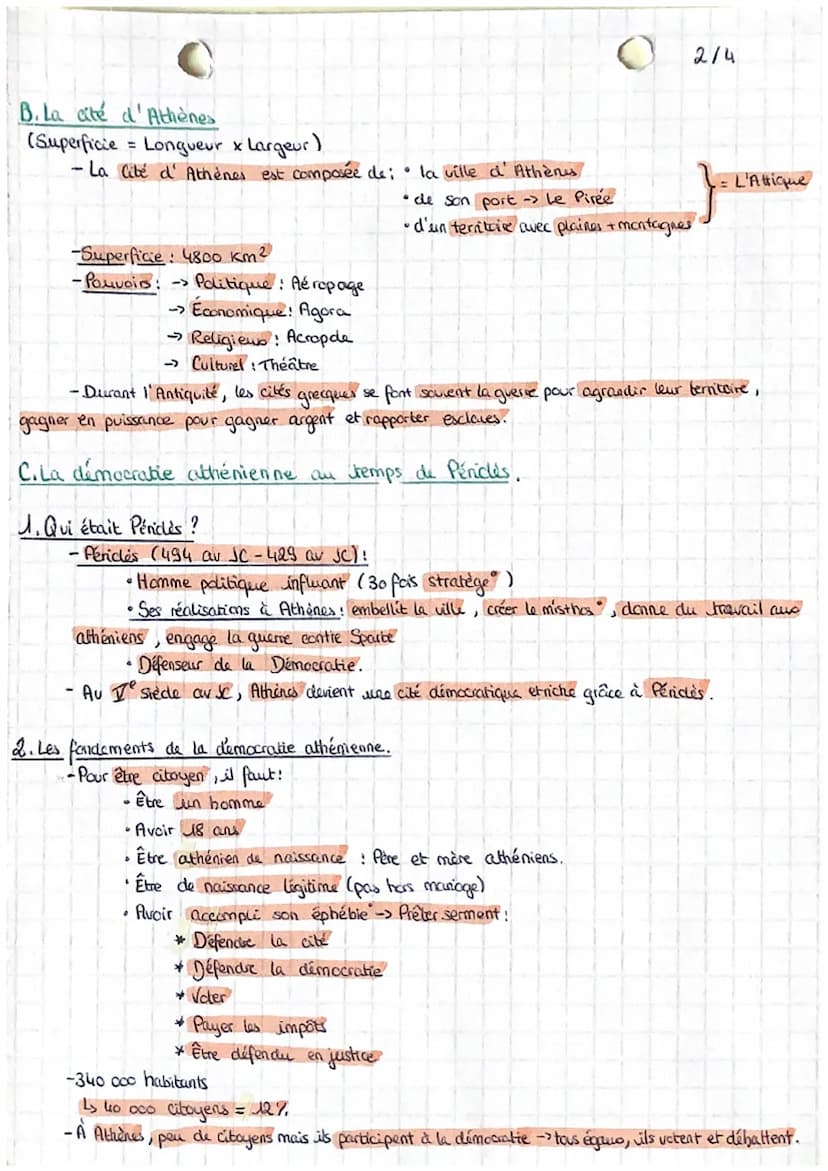 2/4
B. La cité d'Athènes
(Superficie = Longueur x Largeur)
- La Cité d'Athènes est composée de ; • la ville d'Athènes
• de son port -> Le Pirée
• d'un territoire avec plaines + montagnes
= L'Attique
- Superficie : 4800 km²
- Pouvoirs : -> Politique : Aéropage
-> Économique : Agora
-> Religieux : Acropole
-> Culturel : Théâtre
- Durant l'Antiquité, les cités grecques se font souvent la guerre pour agrandir leur territoire,
gagner en puissance pour gagner argent et rapporter esclaves.
C. La démocratie athénienne au temps de Périclès.
1. Qui était Périclès ?
- Périclès (494 av JC - 429 av JC) :
• Homme politique influant (30 fois stratège*)
• Ses réalisations à Athènes : embellit la ville, créer le misthos*, donne du travail aux
athéniens, engage la guerre contre Sparte
• Défenseur de la Démocratie.
- Au Ve siècle av JC, Athènes devient une cité démocratique et riche grâce à Périclès.
2. Les fondements de la démocratie athénienne.
- Pour être citoyen, il faut :
• Être un homme
• Avoir 18 ans
• Être athénien de naissance : Père et mère athéniens.
• Être de naissance légitime (pas hors mariage)
• Avoir accompli son éphébie* -> Prêter serment :
* Défendre la cité
* Défendre la démocratie
* Voter
* Payer les impôts
* Être défendu en justice
- 340 000 habitants
↳ 40 000 citoyens = 12%
- À Athènes, peu de citoyens mais ils participent à la démocratie -> tous égaux, ils votent et débattent.